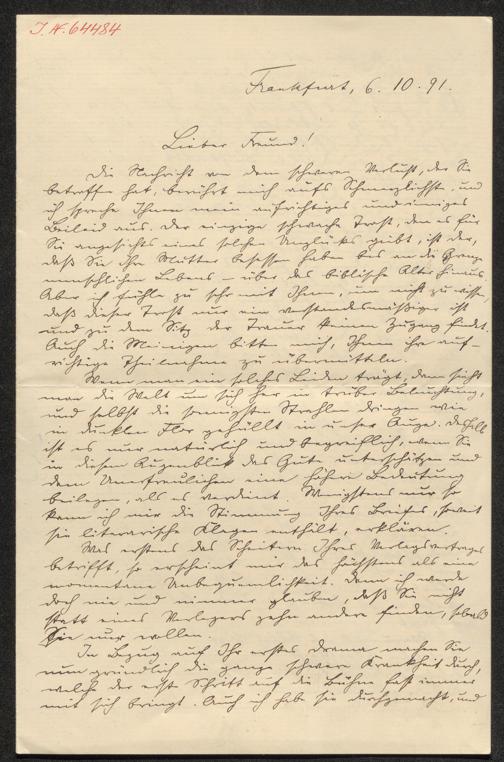 J. N. 64484
Frankfurt, 6. 10. 91.
Lieber Freund!
Die Nachricht von dem schweren Verlust, der Sie
betroffen hat, berührt mich aufs Schmerzlichste, und
ich spreche Ihnen mein aufrichtiges und inniges
Beileid aus. Der einzige schwache Trost, den es für
Sie angesichts eines solchen Unglücks giebt, ist der,
daß Sie Ihre Mutter besessen haben bis an die Grenze
menschlichen Lebens – über das biblische Alter hinaus.
Aber ich fühle zu sehr mit Ihnen, um nicht zu wissen,
daß dieser Trost nur ein verstandesmäßiger ist
und zu dem Sitz der Trauer keinen Zugang findet.
Auch die Meinigen bitten mich, Ihnen ihre auf-
richtige Theilnahme zu übermitteln.
Wenn man ein solches Leiden trägt, dann sieht
man die Welt um sich her in trüber Beleuchtung,
und selbst die sonnigsten Strahlen dringen wie
in dunklen Flor gehüllt in unser Auge. Deshalb
ist es mir natürlich und begreiflich, wenn Sie
in diesem Augenblick das Gute unterschätzen und
dem Unerfreulichen eine höhere Bedeutung
beilegen, als es verdient. Wenigstens nur so
kann ich mir die Stimmung Ihres Briefes, soweit
sie literarische Klagen enthält, erklären.
Was erstens das Scheitern Ihres Verlagsvertrages
betrifft, so erscheint mir das höchstens als eine
momentane Unbequemlichkeit. Denn ich werde
doch nie und nimmer glauben, daß Sie nicht
statt eines Verlegers zehn andere finden, sobald
Sie nur wollen.
In Bezug auf Ihr erstes Drama machen Sie
nun gründlich die ganze schwere Krankheit durch,
welche der erste Schritt auf die Bühne fast immer
mit sich bringt. Auch ich habe sie durchgemacht, und